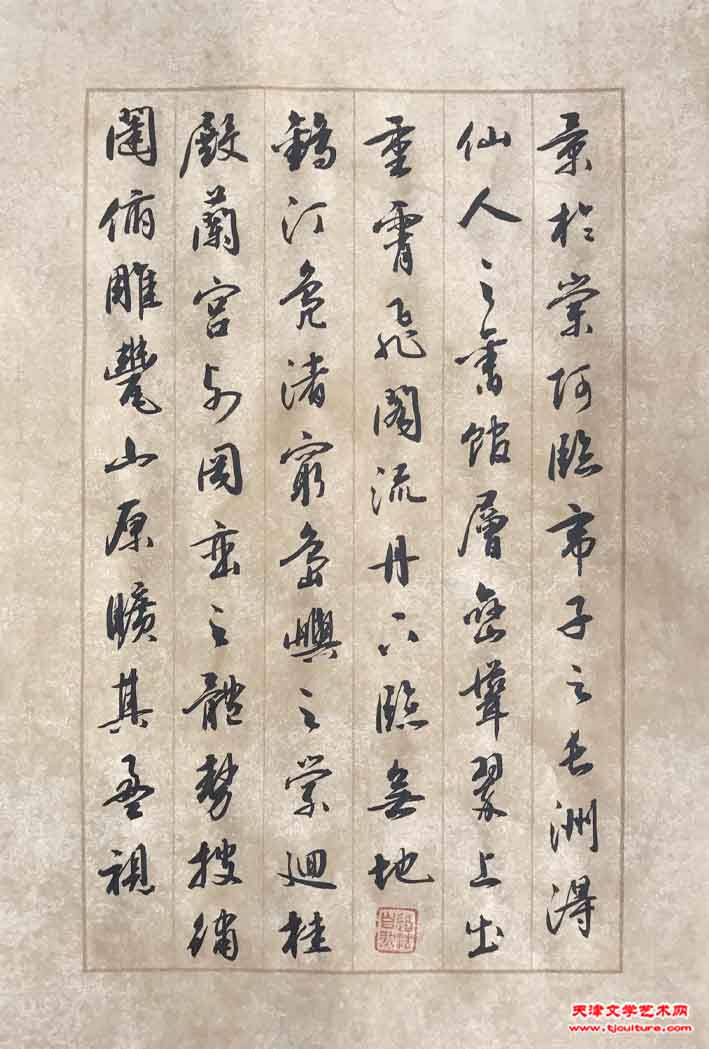 景於崇阿臨帝子之長洲得
仙人之舊館層巒聳翠上出
重霄飛閣流丹下臨無地
鶴汀鳧渚窮島嶼之縈迴桂
殿蘭宮列岡巒之體勢披繡
闥俯雕甍山原曠其盈視
天津文学艺术网
www.tjculture.com